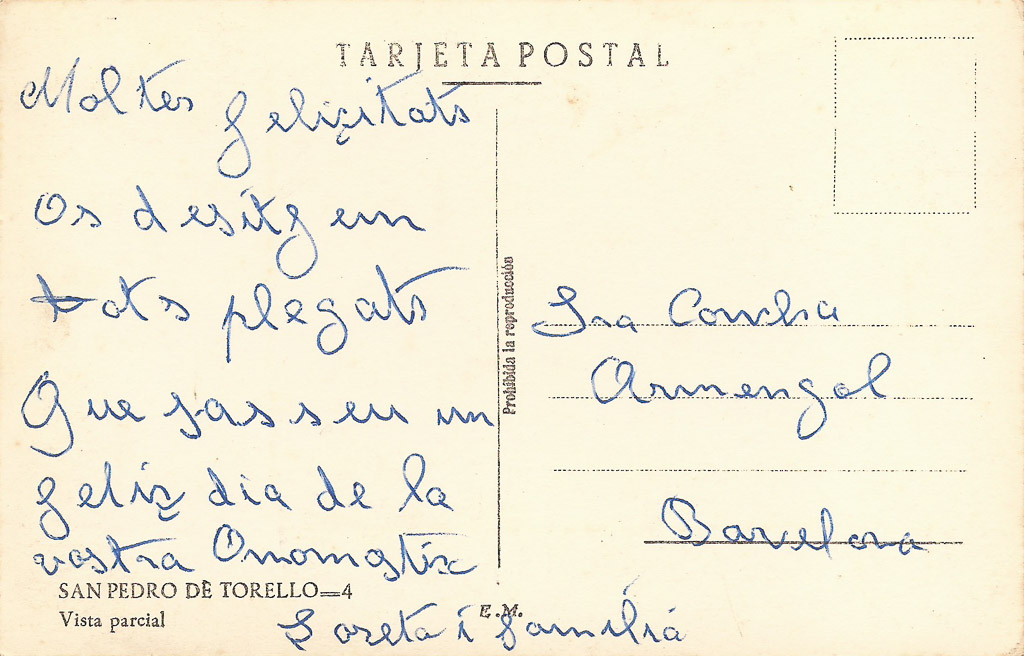 TARJETA POSTAL
Moltes felizitats
Os desitgem
tots plegats
Que passeu un
feliz dia de la
vostra Onomastic
Loreta i familia
Sra Concha
Armengol
Barcelona
Prohibida la reproducción
SAN PEDRO DE TORELLO=4
Vista parcial
E.M.